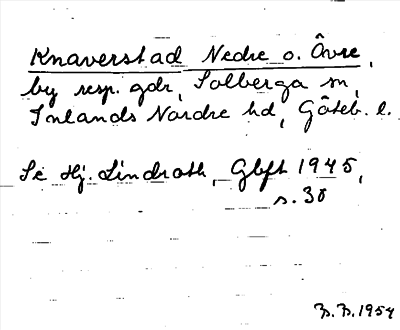 Knaverstad Nedre o. Övre,
by resp. gdr, Solberga sn,
Inlands Nordre hd, Göteb. l.
Se Hj. Lindroth, Gbft 1945,
s. 38
B.B. 1954